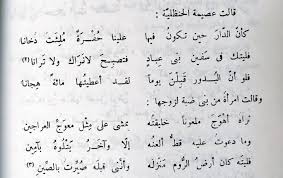 قالت عصيمة الحنظليّة :
كأنّ الدّارَ حين تكونُ فيها علينا حُفْرَةٌ مُلِئَتْ دُخانا
فليتك في سَفين بنى عِباد فتصبحَ لا نَراك ولا تَرانا (٢)
فلو أنّ البُدور قَبِلْن يوماً لقد أعطيتُها مائةً هِجانا
وقالت امرأة من بنى ضبة لزوجها :
تراه أهْوَج ملعوناً خليقتُه يمشى على مِثْل مِعْوَجّ العراجين
وما دعوت عليه قطُّ ألعنُه إلّا وآخَرُ يتلوه بآمين
فليته كان أرضُ الرُّوم منزلَه وأنّنى قبله صُيّرت بالصّين (٣)